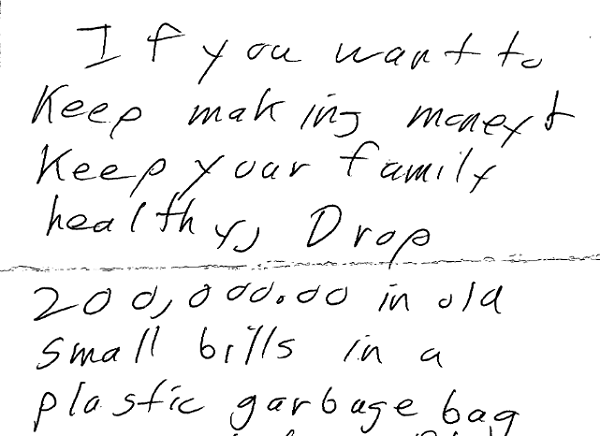 If you want to
Keep making money &
Keep your family
healthy, Drop
200,000.00 in old
small bills in a
plastic garbage bag